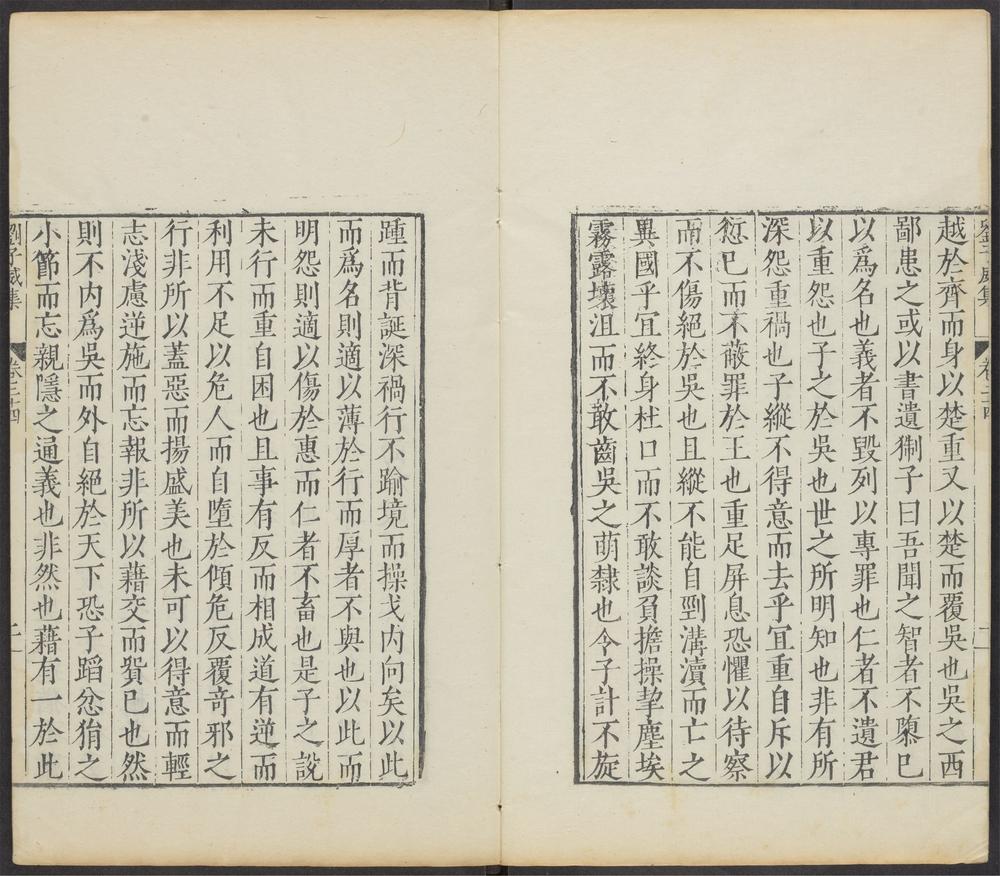 劉子威集 卷三十四
越於齊而身以楚重又以楚而覆吳也吳之西
鄙患之或以書遺猘子曰吾聞之智者不隳已
以爲名也義者不毀列以專罪也仁者不遺君
以重怨也子之於吳也世之所明知也非有所
深怨重禍也子縱不得意而去乎宜重自斥以
愆已而不蔽罪於王也重足屏息恐懼以待察
而不傷絕於吳也且縱不能自剄溝瀆而亡之
異國乎宜終身杜口而不敢談負擔操挚塵埃
霧露壞沮而不敢齒吳之萌隸也今子計不旋
踵而背誕深禍行不踰境而操戈内向矣以此
而爲名則適以薄於行而厚者不與也以此而
明怨則適以傷於惠而仁者不畜也是子之說
未行而重自困也且事有反而相成道有逆而
利用不足以危人而自墮於傾危反覆竒邪之
行非所以蓋惡而揚盛美也未可以得意而輕
志淺慮逆施而忘報非所以藉交而貿已也然
則不内爲吳而外自絕於天下恐子蹈忿狷之
小節而忘親隱之通義也非然也藉有一於此
劉子威集 卷三十四 二